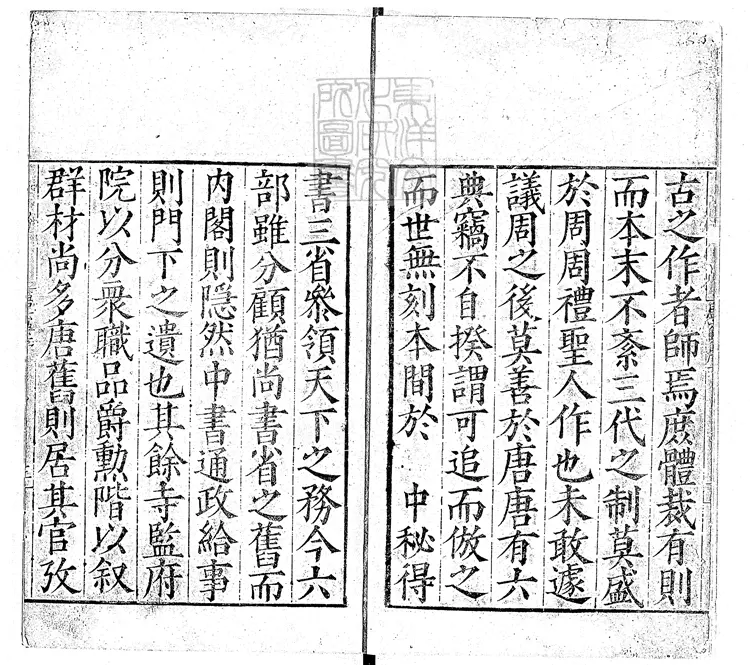 古之作者師焉庶體裁有則
而本末不紊三代之制莫盛
於周周禮聖人作也未敢遽
議周之後莫善於唐唐有六
典竊不自揆謂可追而倣之
而世無刻本間於　中秘得
書三省叅領天下之務今六
部雖分顧猶尚書省之舊而
内閣則隱然中書通政給事
則門下之遺也其餘寺監府
院以分衆職品爵勲階以叙
群材尚多唐舊則居其官攷